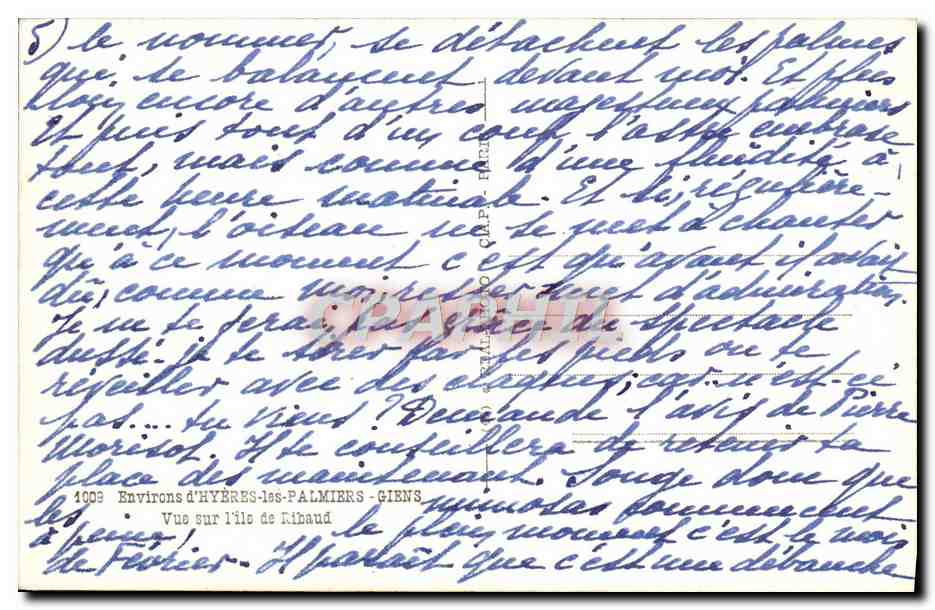 5) le nommer, se détachent les palmes
qui se balancent devant moi. Et plus
loin encore d'autres majestueux palmiers
Et puis tout d'un coup, l'astre embrase
tout, mais comme d'une fluidité à
cette heure matinale. Et si, régulière-
ment, l'oiseau ne se met à chanter
qu'à ce moment c'est qu'avant il avait
dû, comme moi, rester muet d'admiration.
Je ne te ferai pas grâce du spectacle
dussé-je te tirer par les pieds ou te
réveiller avec des claques, car.. n'est-ce
pas.... tu viens ? Demande l'avis de Pierre
Morisot. Il te conseillera de retenir ta
place dès maintenant. Songe donc que
les mimosas commencent
à peine, le plein moment c'est le mois
de Février. Il paraît que c'est une débauche
1009 Environs d'HYÈRES-les-PALMIERS - GIENS
Vue sur l'île de Ribaud
RÉAL-PHOTO C.A.P. - PARIS
CPAPHIL